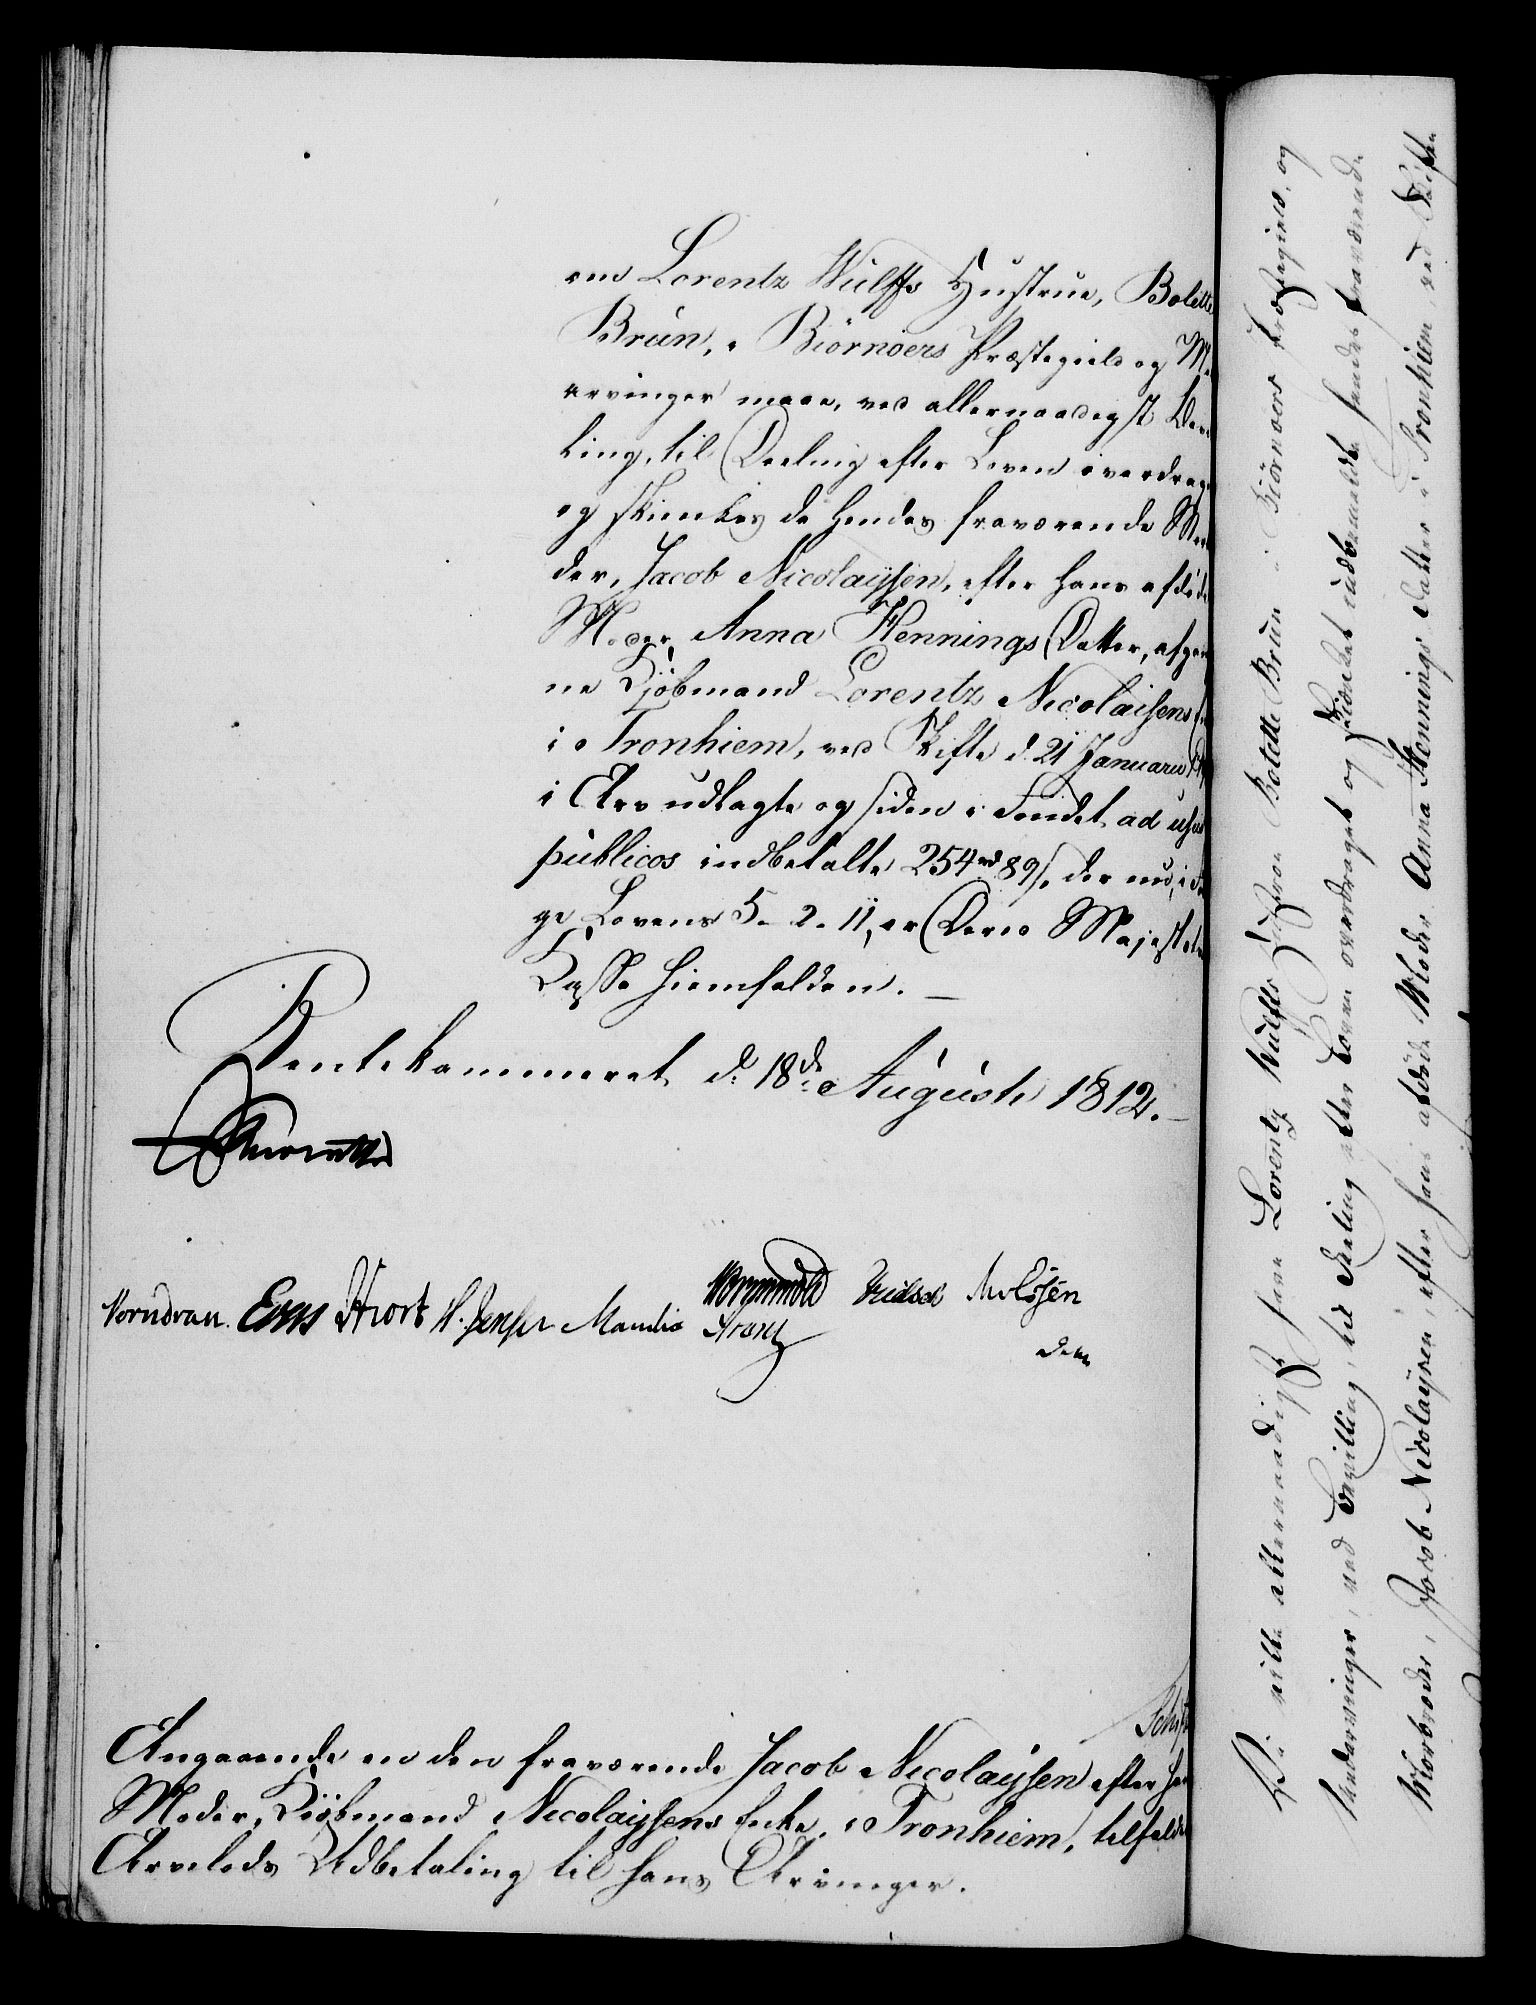 om Lorentz Wulffs Hustrue, Bolette
Brun, i Biörnöers Præstegield og M
arvinger maae, ved allernaadigst Be
ling, til Deeling efter Loven overdrag
og skienkes de hendes fraværende Mor
der, Jacob Nicolaysen, efter hans afdöde
Moder, Anna Hennings Datter, afgan
ne Kjöbmand Lorentz Nicolaisens
i Tronhiem, ved Skifte d. 21 Januarii
i Arv udlagte og siden i Fondet ad usus
publicos indbetalte 254 rd 89 s. der nu, i
ge Lovens 5-2-11, er Deres Majestets
Casse hiemfalden. —
Rentekammeret d. 18de Augusti 1812. —
Vorndran. Hiort H. Jensen Manthe
Krontz
Angaaende en den fraværende Jacob Nicolaysen efter han
Moder, Kiöbmand Nicolaysens Enke, i Tronhiem, tilfalden
Arvelods Udbetaling til hans Arvinger.
Vi ville allernaadigst have Lorentz Wulffs Hustroe Bolette Brun i Biörnöers Præstegield, og
Medarvinger, ved Bevilling, til Deeling efter Loven overdraget og skienket indbemeldte hendes fraværende
Morbroder, Jacob Nicolaysen, efter hans afdöde Moder Anna Hennings Datter i Tronhiem ved Skifte